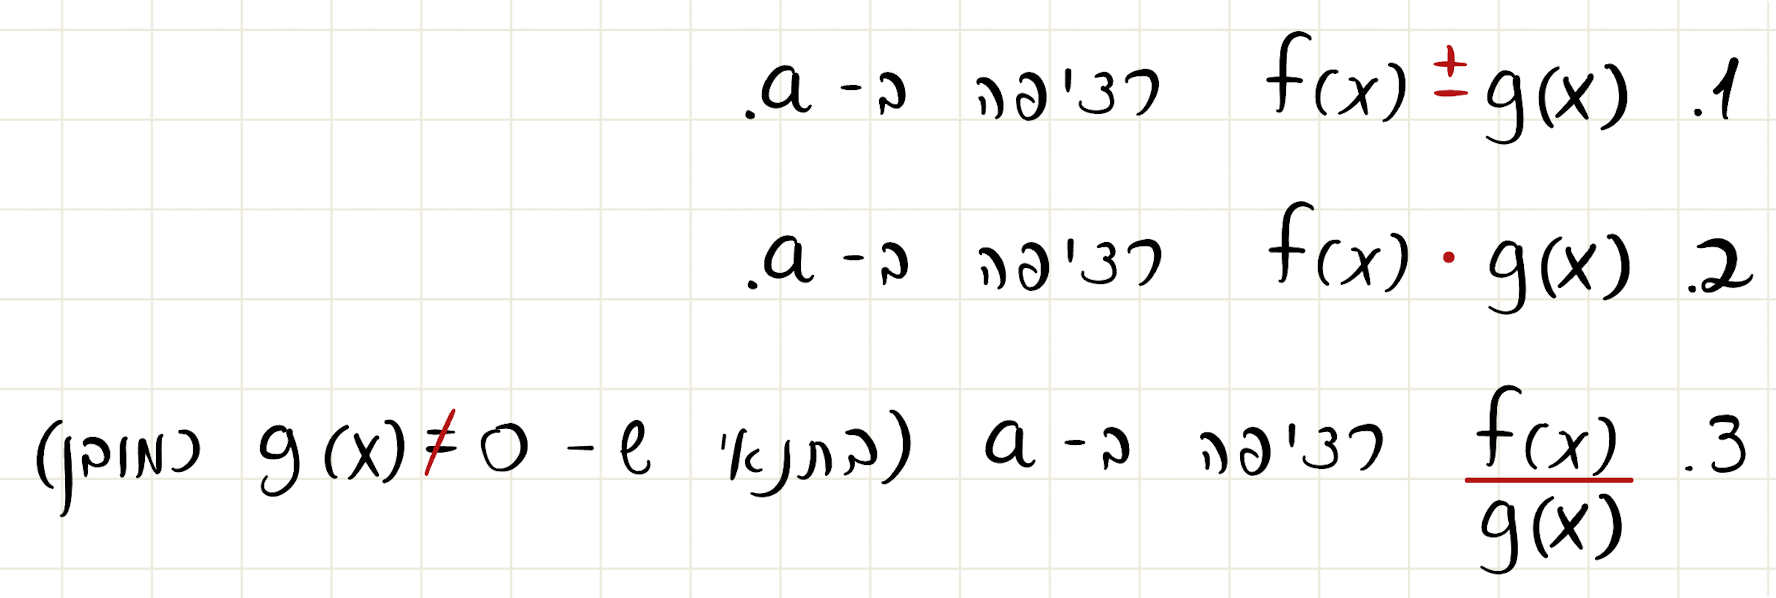 1. f(x) ± g(x) רציפה ב- a.
2. f(x) · g(x) רציפה ב- a.
3. f(x)/g(x) רציפה ב- a (בתנאי ש- g(x) ≠ 0 כמובן)